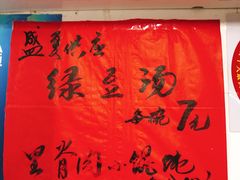 盛夏供应
绿豆汤
每碗7元
里脊肉小馄饨